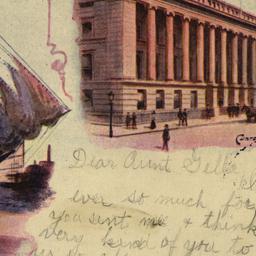 Dear Aunt
ever so much for
you sent me & think
very kind of you to